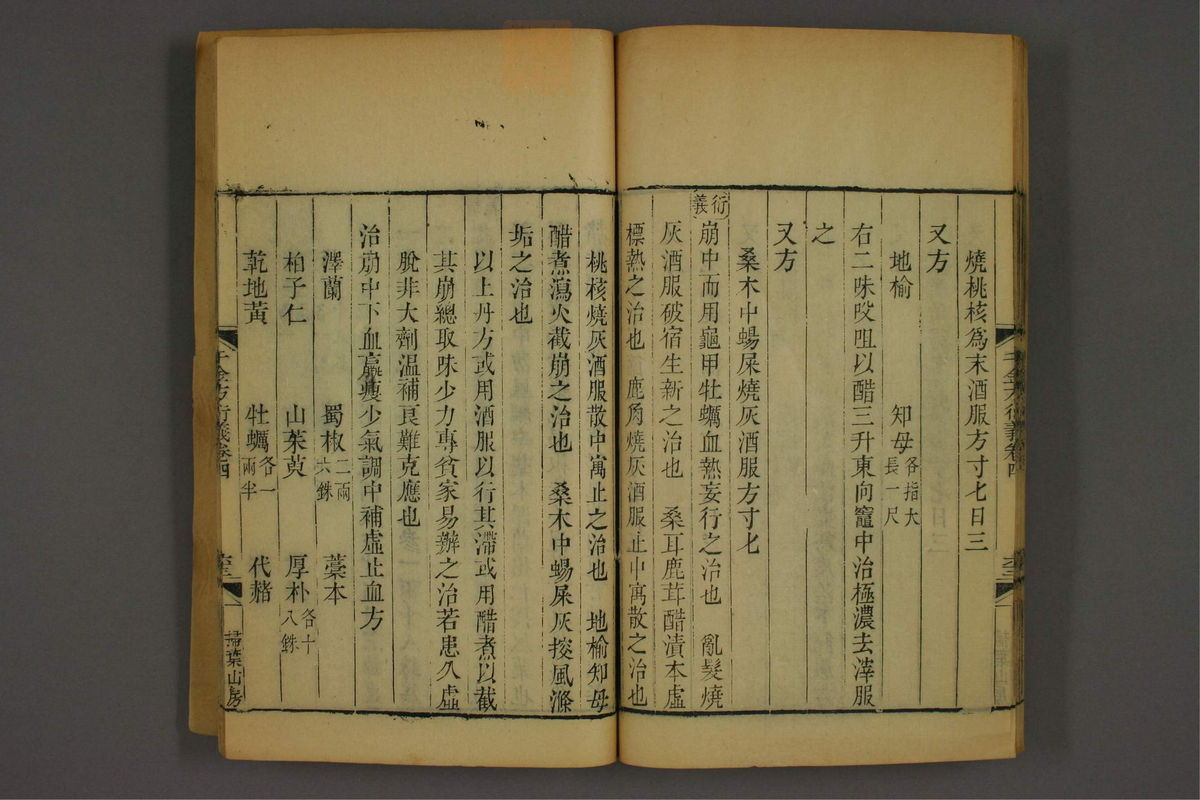 燒桃核爲末酒服方寸七日三
又方
地榆 知母各指大長一尺
右二味㕮咀以醋三升東向竈中治極濃去滓服
之
又方
桑木中蝎屎燒灰酒服方寸七
衍義
崩中而用龜甲牡蠣血熱妄行之治也 亂髮燒
灰酒服破宿生新之治也 桑耳鹿茸醋漬本虛
標熱之治也 鹿角燒灰酒服止中寓散之治也
桃核燒灰酒服散中寓止之治也 地榆知母
醋煮瀉火截崩之治也 桑木中蝎屎灰搜風滌
垢之治也
以上丹方或用酒服以行其滯或用醋煮以截
其崩總取味少力專貧家易辦之治若患久虛
脫非大劑溫補良難克應也
治崩中下血羸瘦少氣調中補虛止血方
澤蘭 蜀椒二兩六銖 藁本
柏子仁 山茱萸 厚朴各十八銖
乾地黃 牡蠣各一兩半 代赭
千金方衍義卷四
掃葉山房